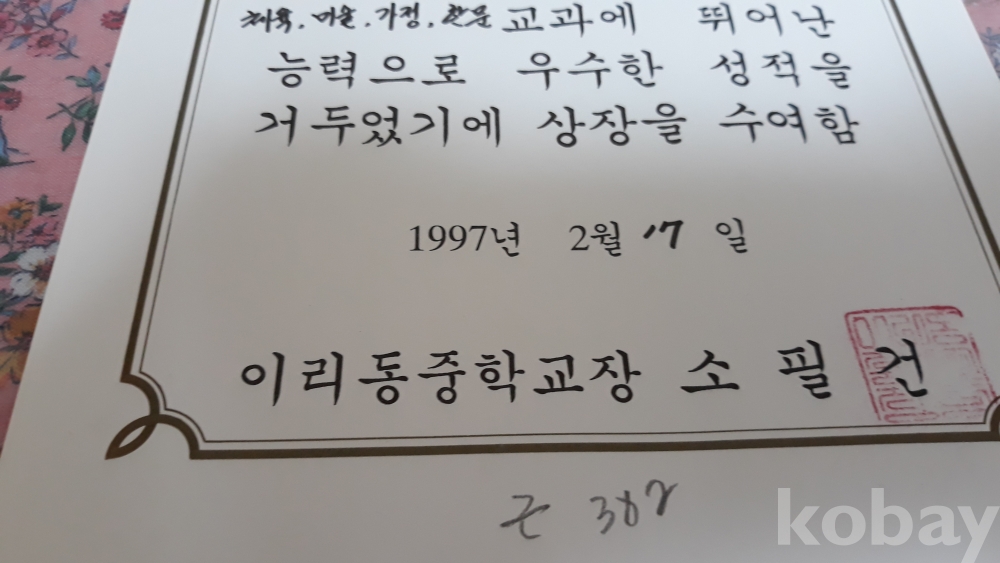 체육. 미술. 가정. 한문 교과에 뛰어난
능력으로 우수한 성적을
거두었기에 상장을 수여함
1997년 2월 17 일
이리동중학교장 소 필 건
kobay